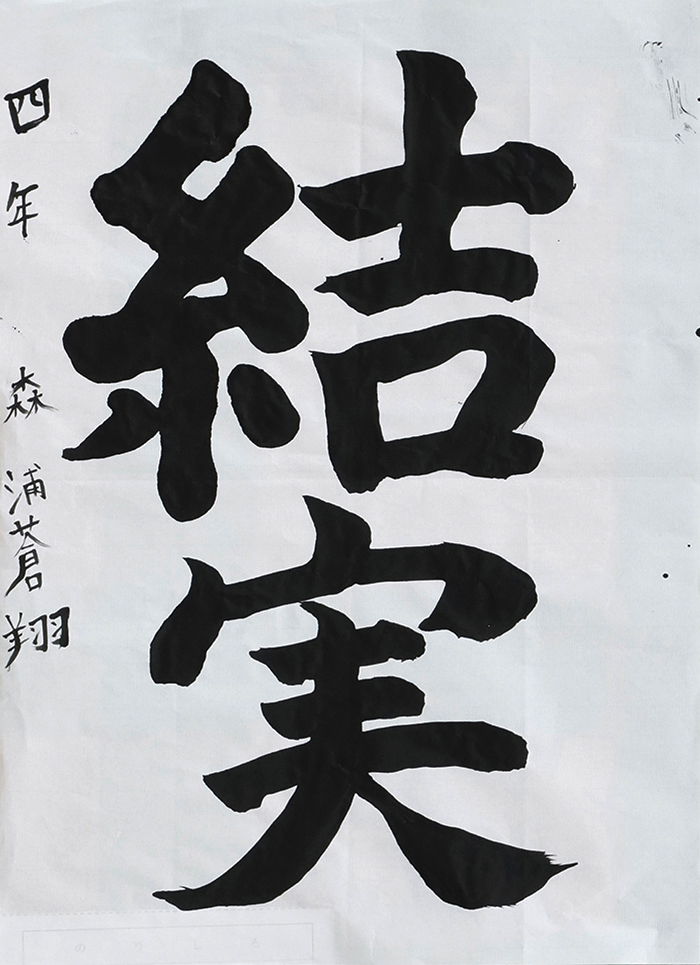 結実
四年 森浦蒼翔